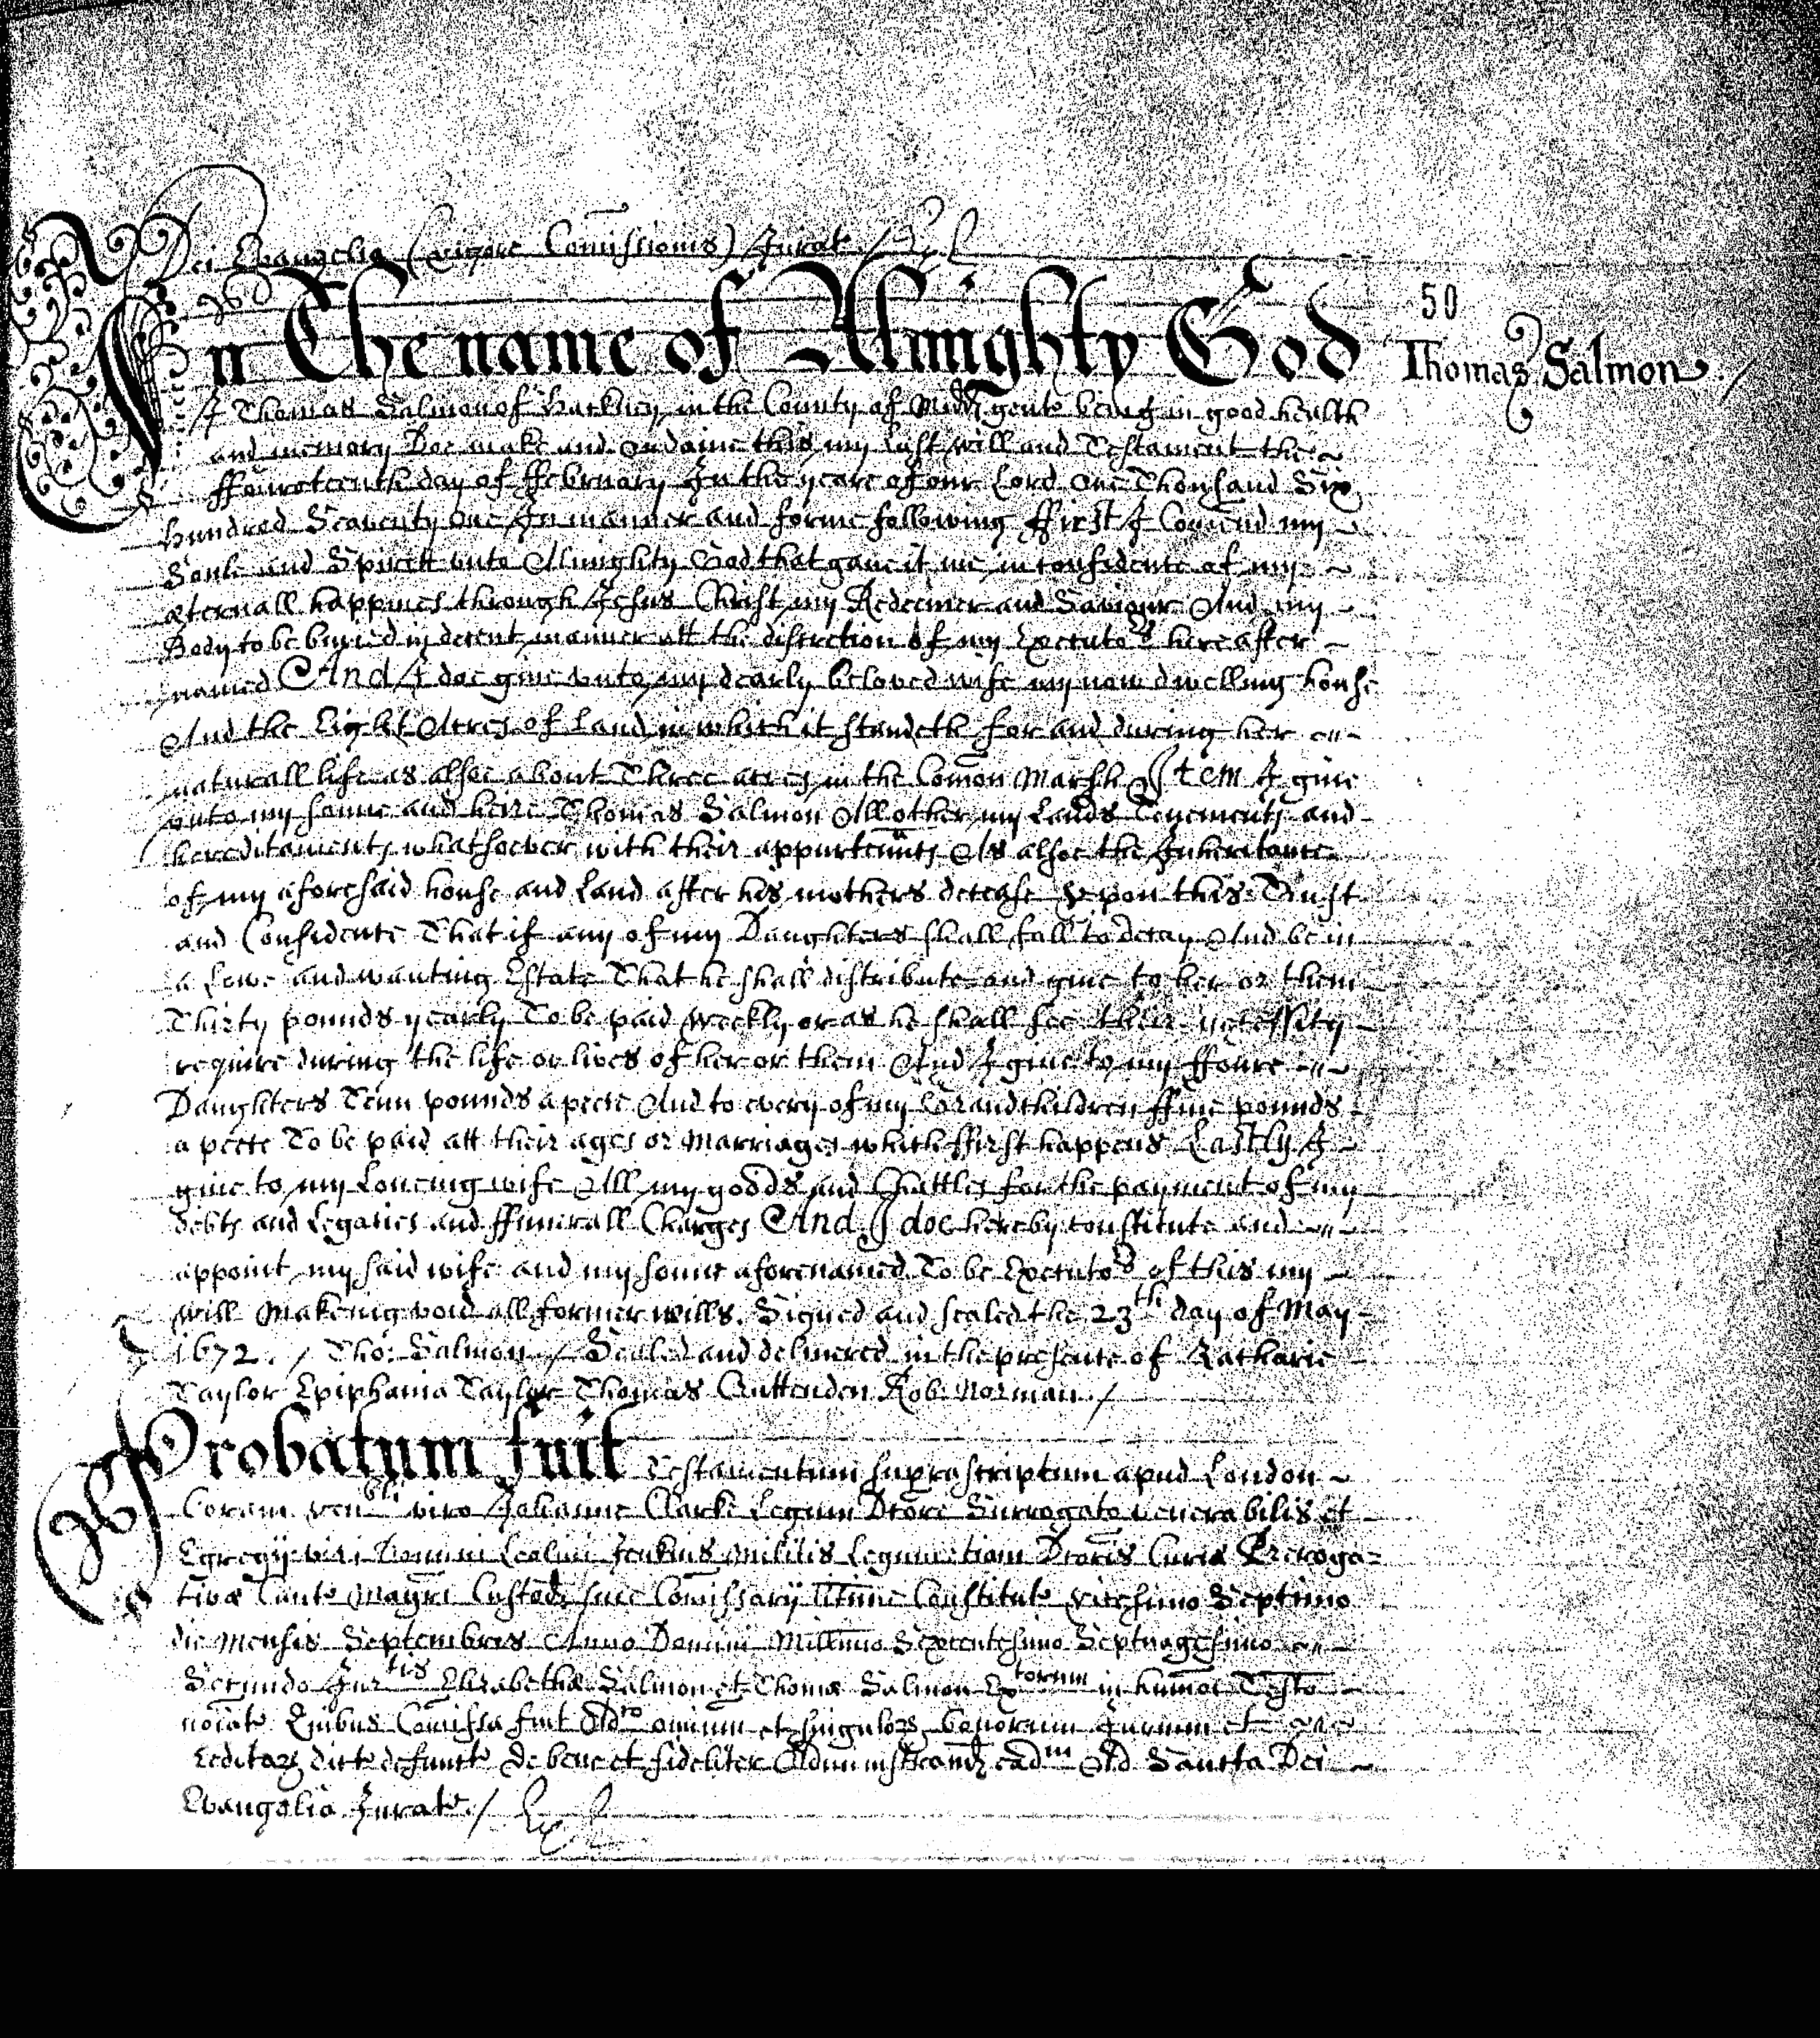 Dei Evangelia (vigore Comissionis) Jurat / Ex
50
In The name of Almighty God
Thomas Salmon /
I Thomas Salmon of Hackney in the County of Midd gente being in good health
and memory Doe make and ordaine this my last will and Testament the
ffourteenth day of ffebruary In the yeare of our Lord One Thousand Six
hundred Seaventy One In manner and forme following ffirst I Comend my
Soule and Spiritt vnto Almighty God that gave it me in confidence of my
æternall happines through Jesus Christ my Redeemer and Saviour And my
Body to be buried in decent manner att the discretion of my Executors hereafter
named And I doe give vnto my dearly beloved wife my now dwelling house
And the Eight Acres of Land in which it standeth for and during her
naturall life as alsoe about Three acres in the Comon Marsh Item I give
vnto my sonne and heire Thomas Salmon All other my Lands Tenements and
hereditaments whatsoever with their appurtennts As alsoe the Inheritance
of my aforesaid house and Land after his mothers decease Vpon this Trust
and Confidence That if any of my Daughters shall fall to decay And be in
a Lowe and wanting Estate That he shall distribute and give to her or them
Thirty pounds yearly To be paid weekly or as he shall see their necessity
require during the life or lives of her or them And I give to my ffoure
Daughters Tenn pounds a peece And to every of my Grandchildren ffive pounds
a peece To be paid att their ages or Marriages which ffirst happens Lastly I
give to my Loveing wife All my goods and Chattles for the payment of my
debts and Legacies and ffunerall Charges And I doe hereby constitute and
appoint my said wife and my sonne aforenamed To be Executors of this my
will Makeing void all former wills. Signed and sealed the 23th day of May
1672. / Tho: Salmon / Sealed and delivered in the presence of Katharie
Taylor Epiphania Taylor Thomas Cruttenden Rob: Norman /
Probatum fuit Testamentum suprascriptum apud London
Coram venbli viro Johanne Clarke Legum Dtore Surrogato venerabilis et
Egregij viri Domini Leolini Jenkins Militis Legum etiam Dtoris Curiæ Preroga=
tivæ Cant Magri Custod sive Comissarij ltime Constitut vicesimo Septimo
die Mensis Septembris Anno Domini Millimo Sexcentesimo Septuagesimo
Secundo Jurtis Elizabethæ Salmon et Thomæ Salmon Extorum in humoi Testo
noiat Quibus Comissa fuit Adtio omnium et singulor bonorum Jurium et
Creditor dicti defuncti De bene et fideliter Administrand eadm Ad Sancta Dei
Evangelia Jurat. / Ex